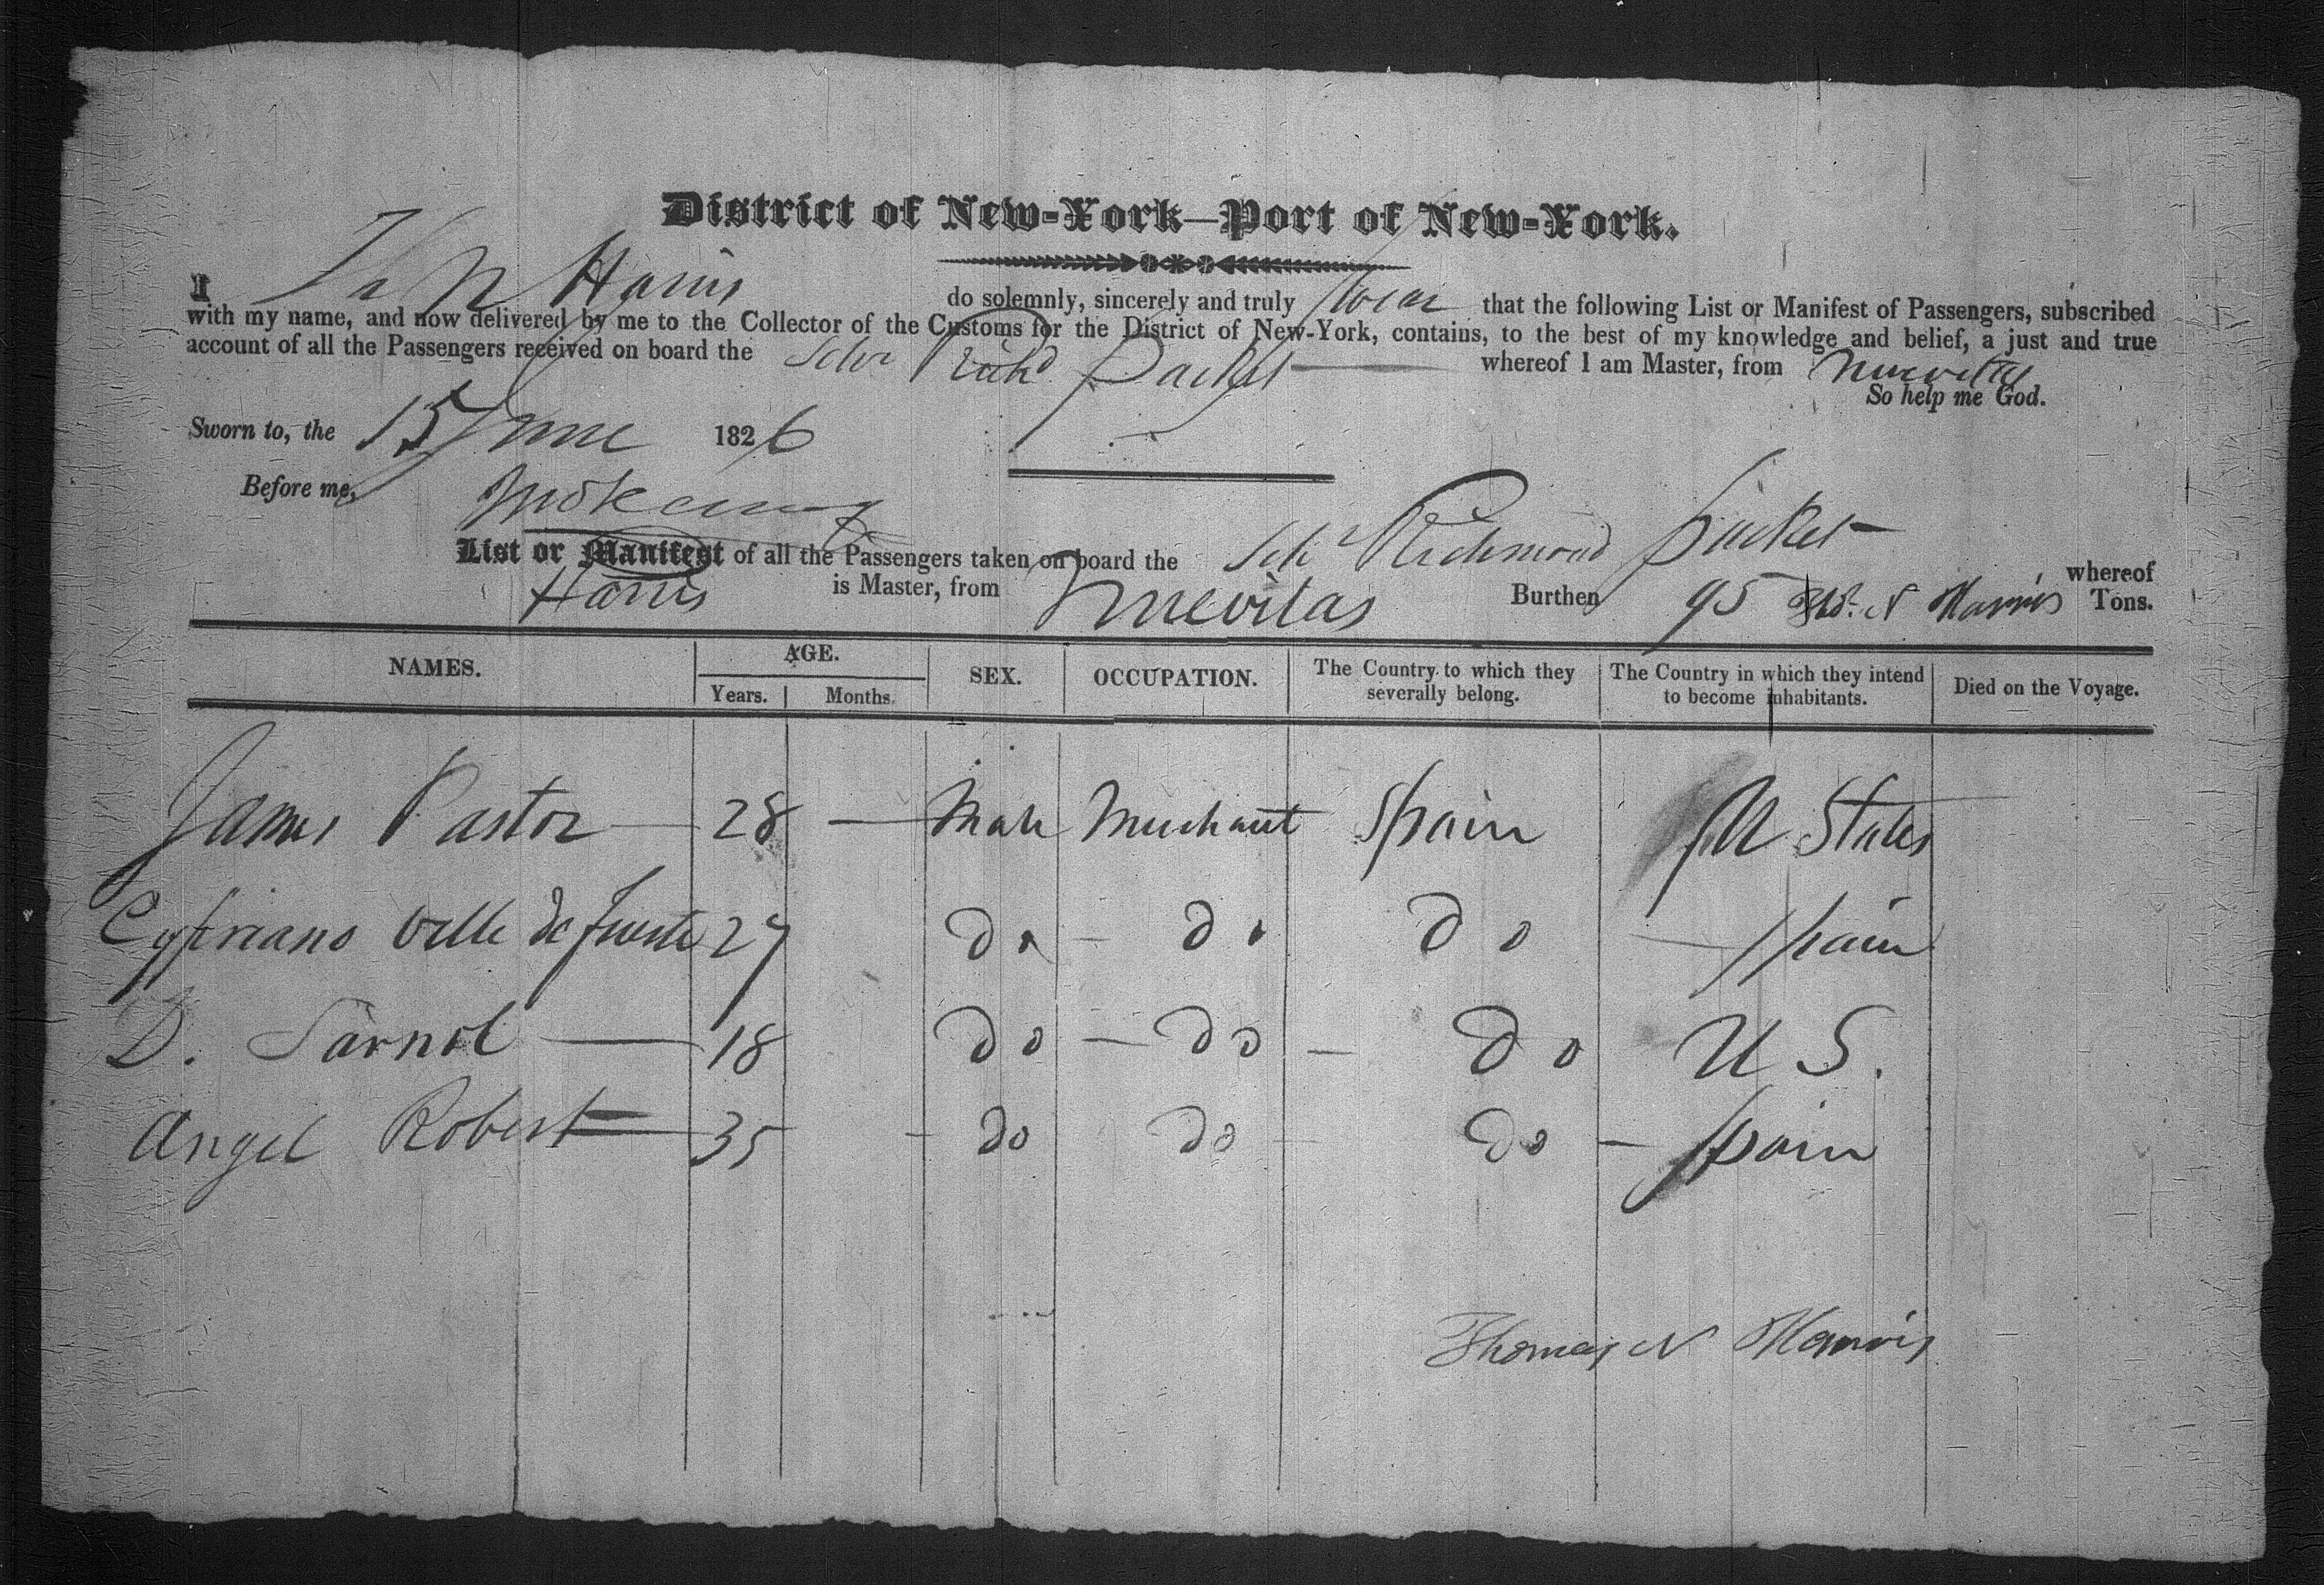 District of New-York—Port of New-York.
I Th N Harris do solemnly, sincerely and truly swear that the following List or Manifest of Passengers, subscribed
with my name, and now delivered by me to the Collector of the Customs for the District of New-York, contains, to the best of my knowledge and belief, a just and true
account of all the Passengers received on board the Schr Richd Packet whereof I am Master, from Nuevitas
So help me God.
Sworn to, the 15 June 1826
Before me,
List or Manifest of all the Passengers taken on board the Sch Richmond Packet whereof
Harris is Master, from Nuevitas Burthen 95 N Harris Tons.
NAMES. AGE. Years. Months. SEX. OCCUPATION. The Country to which they severally belong. The Country in which they intend to become inhabitants. Died on the Voyage.
James Pastor — 28 — Male Merchant Spain U States
Cypriano Velle de fuente 27 Do — Do Do — Spain
D. Sarnol — 18 Do — Do — Do U S.
Angel Robert — 35 — do do — do — Spain
Thomas N Harris